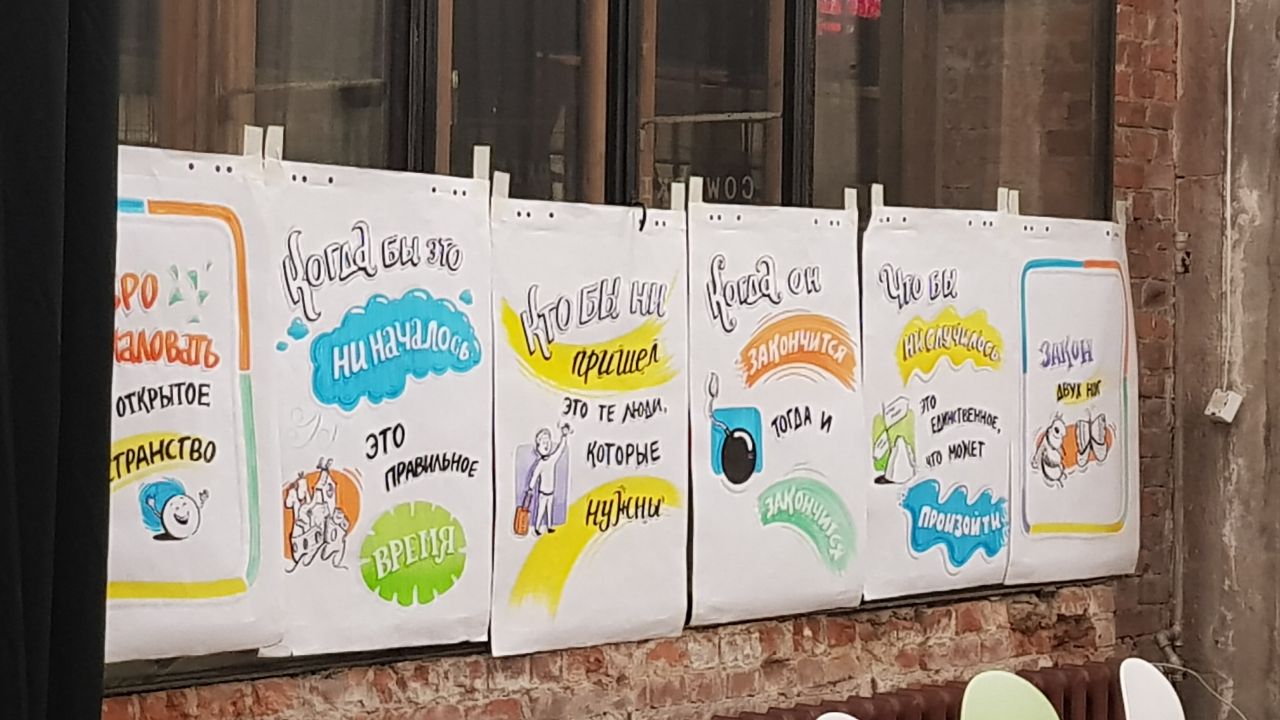 ОТКРЫТОЕ
Когда бы это
ни началось
это
правильное
время
Кто бы ни
пришел
это те люди,
которые
нужны
Когда он
закончится
тогда и
закончится
Что бы
ни случилось
это
единственное,
что может
произойти
Закон
двух ног